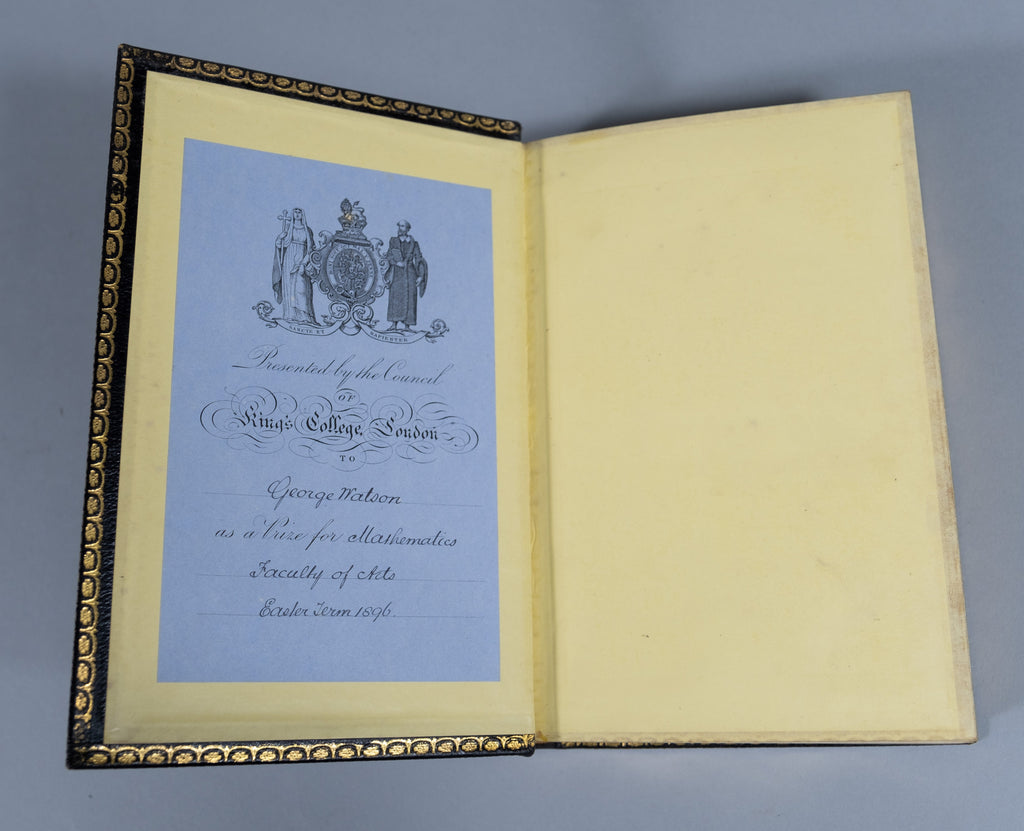 SANCTE ET SAPIENTER
Presented by the Council
OF
King's College, London
TO
George Watson
as a Prize for Mathematics
Faculty of Arts
Easter Term 1896.